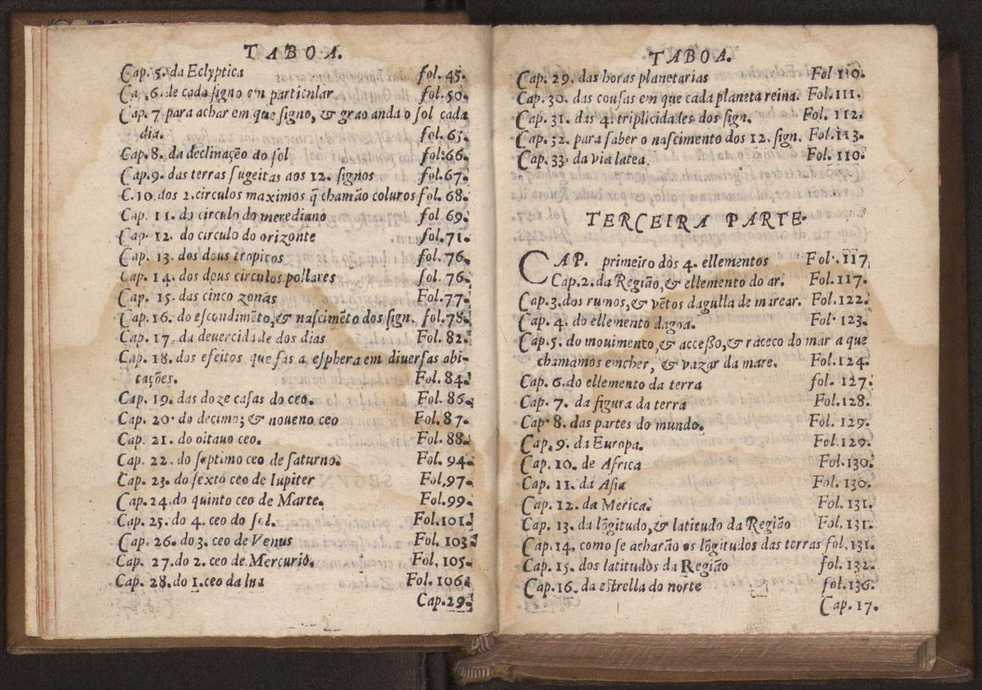 TABOA.
Cap. 5. da Eclyptica fol. 45.
Ca, 6. de cada signo em particular fol. 50.
Cap. 7 para achar em que signo, & grao anda o sol cada
dia. fol. 65.
Cap. 8. da declinação do sol fol: 66.
Cap. 9. das terras sugeitas aos 12. signos fol. 67.
C. 10. dos 2. circulos maximos q̃ chamão coluros fol. 68.
Cap. 11. do circulo do merediano fol 69.
Cap. 12. do circulo do orizonte fol. 71.
Cap. 13. dos dous tropicos fol. 76.
Cap. 14. dos dous circulos pollares fol. 76.
Cap. 15. das cinco zonas Fol. 77.
Cap. 16. do escondimẽto, & nascimẽto dos sign. fol. 78.
Cap. 17. da deuercidade dos dias Fol. 82.
Cap. 18. dos efeitos que fas a esphera em diuersas abi-
tações. Fol. 84.
Cap. 19. das doze casas do ceo. Fol. 86.
Cap. 20. do decimo; & noueno ceo Fol. 87.
Cap. 21. do oitauo ceo. Fol. 88.
Cap. 22. do septimo ceo de saturno. Fol. 94.
Cap. 23. do sexto ceo de Iupiter Fol. 97.
Cap. 24. do quinto ceo de Marte. Fol. 99.
Cap. 25. do 4. ceo do sol. Fol. 101.
Cap. 26. do 3. ceo de Venus Fol. 103
Cap. 27. do 2. ceo de Mercurio. Fol. 105.
Cap. 28. do 1. ceo da lua Fol. 106.
Cap. 29.
TABOA.
Cap. 29. das horas planetarias Fol 110.
Cap. 30. das cousas em que cada planeta reina. Fol. 111.
Cap. 31. das 4. triplicidades dos sign. Fol. 112.
Cap. 32. para saber o nascimento dos 12. sign. Fol. 113.
Cap. 33. da via latea. Fol. 110.
TERCEIRA PARTE.
CAP. primeiro dos 4. ellementos Fol. 117,
Cap. 2. da Região, & ellemento do ar. Fol. 117.
Cap. 3. dos rumos, & vẽtos dagulla de marear. Fol. 122.
Cap. 4. do ellemento dagoa. Fol. 123.
Cap. 5. do mouimento, & accesso, & raceco do mar a que
chamamos encher, & vazar da mare. Fol. 124.
Cap. 6. do ellemento da terra fol. 127.
Cap. 7. da figura da terra Fol. 128.
Cap. 8. das partes do mundo. Fol. 129.
Cap. 9. da Europa. Fol. 129.
Cap. 10. de Africa Fol. 130.
Cap. 11. da Asia Fol. 130.
Cap. 12. da Merica. Fol. 131.
Cap. 13. da lõgitudo, & latitudo da Região Fol. 131.
Cap. 14. como se acharão os lõgitudos das terras fol. 131.
Cap. 15. dos latitudos da Região fol. 132.
Cap. 16. da estrella do norte fol. 136.
Cap. 17.